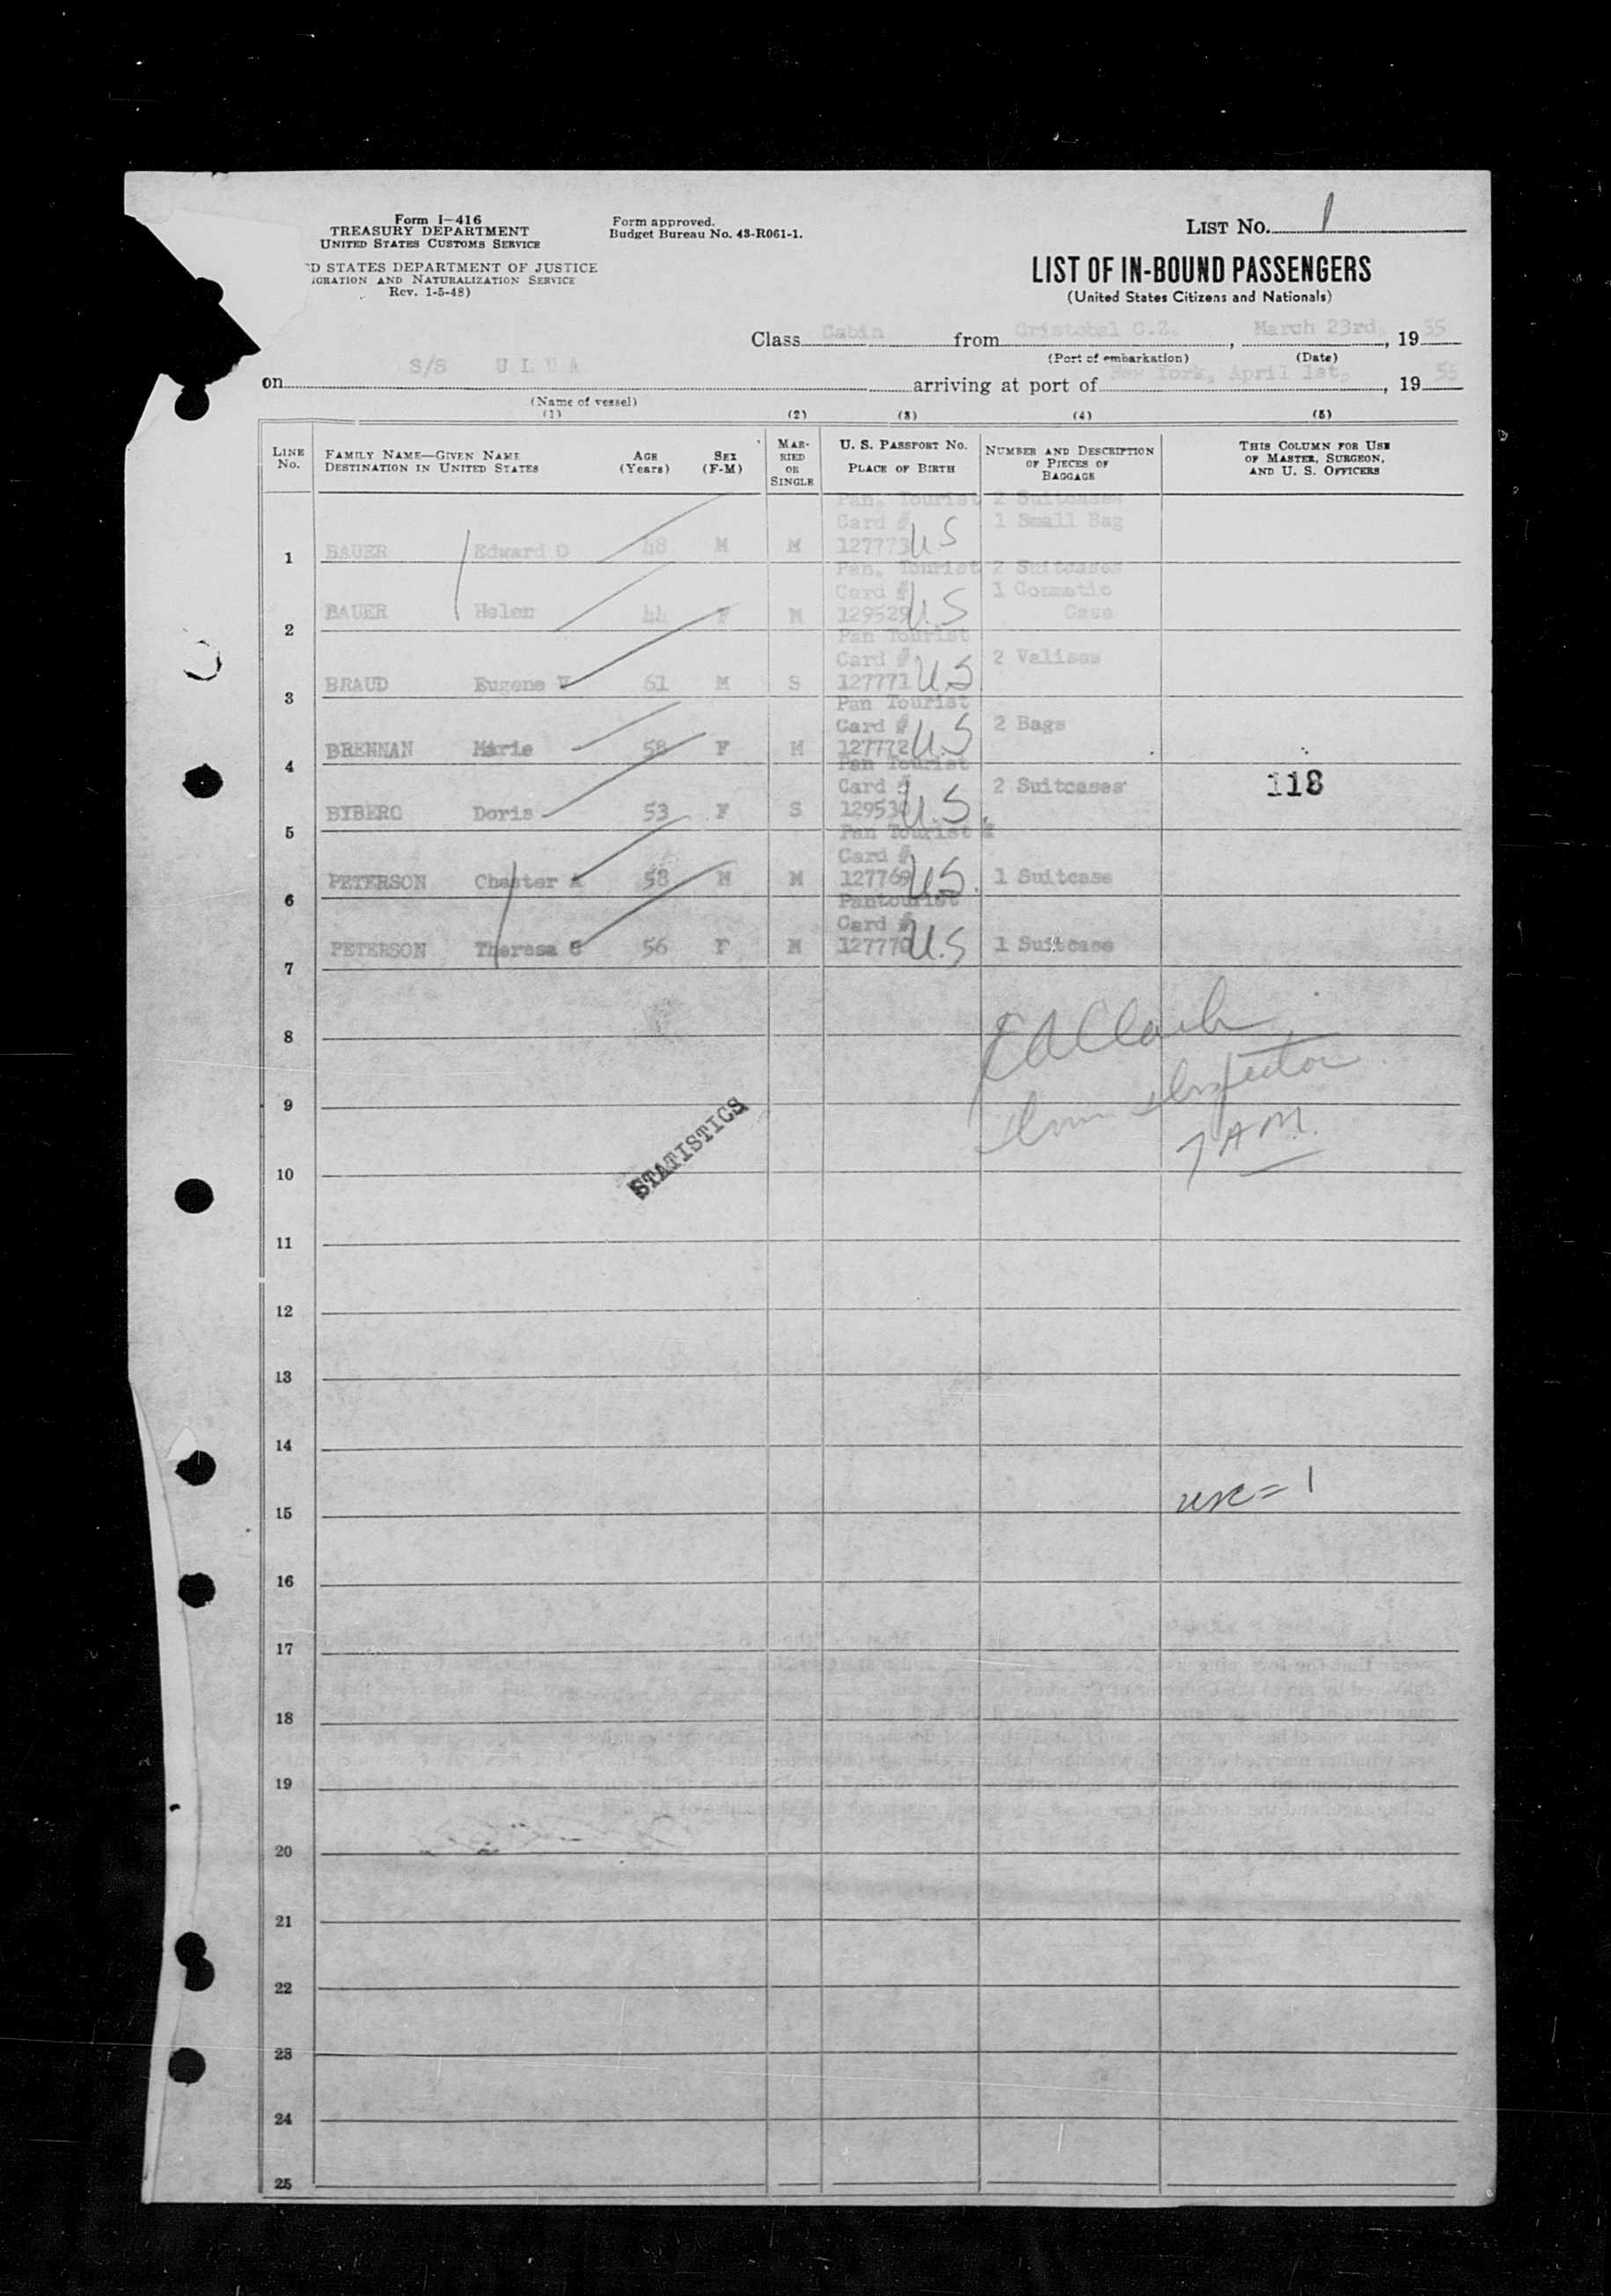 Form I-416
TREASURY DEPARTMENT
UNITED STATES CUSTOMS SERVICE
D STATES DEPARTMENT OF JUSTICE
IGRATION AND NATURALIZATION SERVICE
Rev. 1-5-48)
Form approved.
Budget Bureau No. 43-R061-1.
LIST No. 1
LIST OF IN-BOUND PASSENGERS
(United States Citizens and Nationals)
Class Cabin from Cristobal C.Z., March 23rd, 19 55
(Port of embarkation) (Date)
on S/S ULUA arriving at port of New York, April 1st, 19 55
(Name of vessel)
(1) (2) (3) (4) (5)
LINE No.
FAMILY NAME—GIVEN NAME
DESTINATION IN UNITED STATES
AGE (Years)
SEX (F-M)
MARRIED OR SINGLE
U. S. PASSPORT NO.
PLACE OF BIRTH
NUMBER AND DESCRIPTION OF PIECES OF BAGGAGE
THIS COLUMN FOR USE OF MASTER, SURGEON, AND U. S. OFFICERS
Pan. Tourist 2 Suitcases
Card # 1 Small Bag
1 BAUER Edward O 48 M M 127773 U.S
Pan. Tourist 2 Suitcases
Card # 1 Cosmetic
2 BAUER Helen 44 F M 129529 U.S Case
Pan Tourist
Card # 2 Valises
3 BRAUD Eugene 61 M S 127771 U.S
Pan Tourist
Card # 2 Bags
4 BRENNAN Marie 58 F M 127772 U.S
Pan Tourist
Card # 2 Suitcases 118
5 BYBERG Doris 53 F S 12953 U.S.
Pan Tourist
Card #
6 PETERSON Chester A 58 M M 127769 U.S. 1 Suitcase
Pantourist
Card #
7 PETERSON Theresa 56 F M 127770 U.S 1 Suitcase
8
Inspector
9
7 AM.
STATISTICS
10
11
12
13
14
usc = 1
15
16
17
18
19
20
21
22
23
24
25